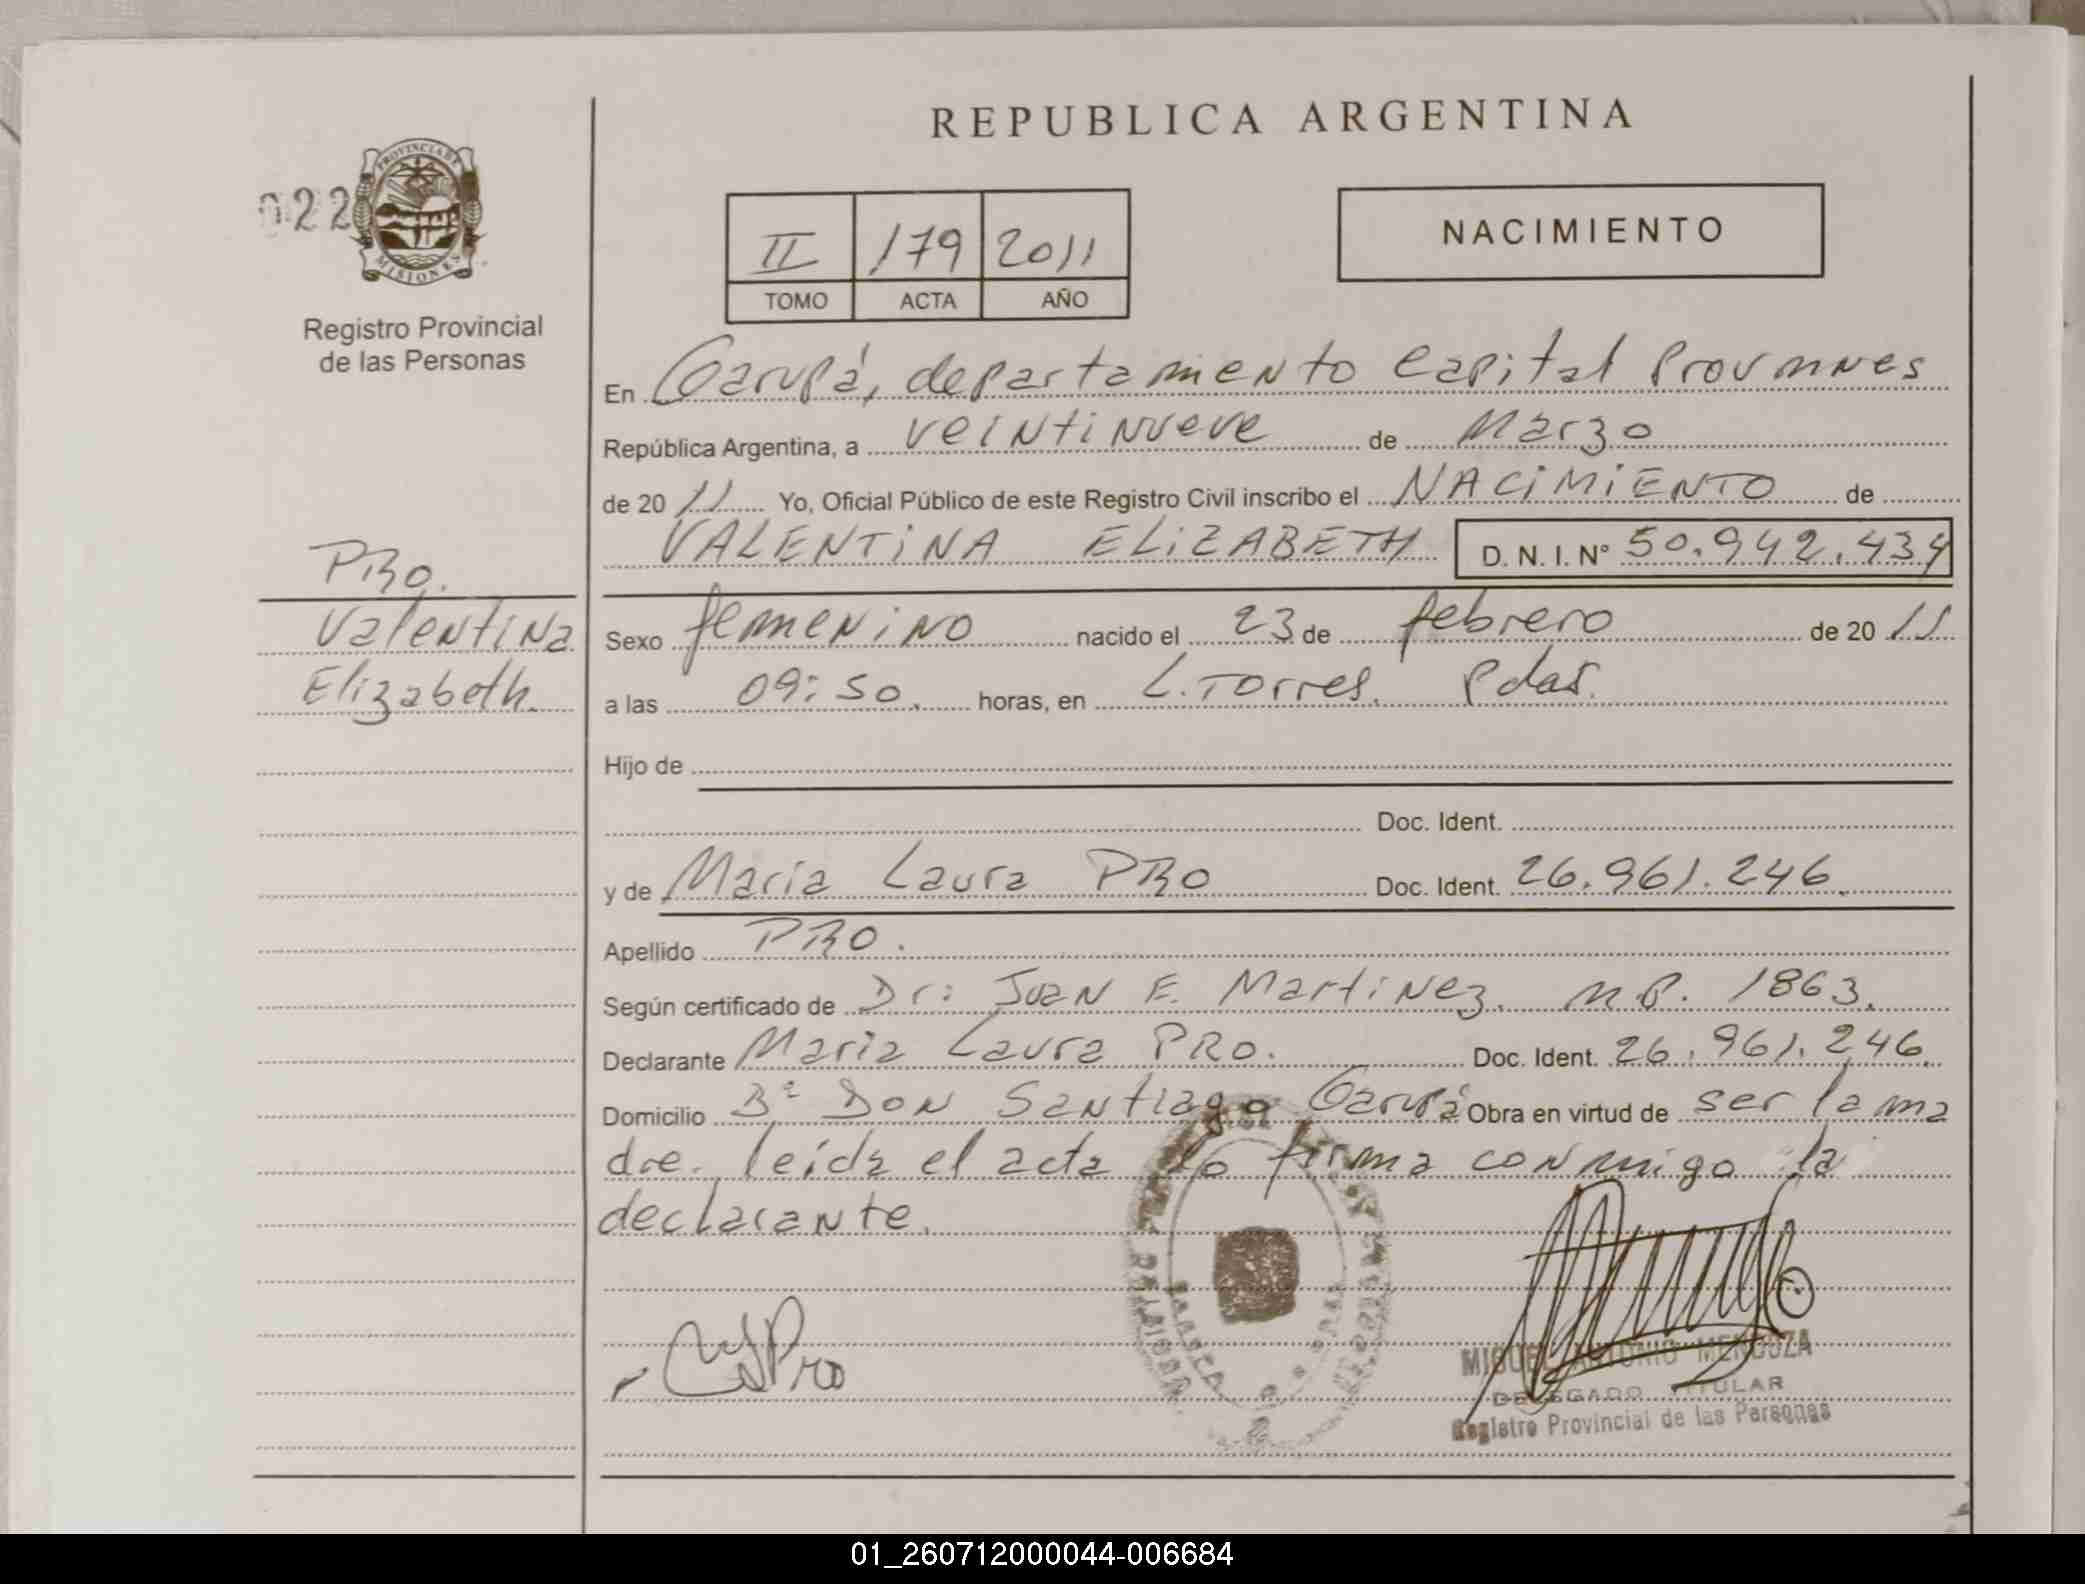 REPUBLICA ARGENTINA
022
PROVINCIA DE
MISIONES
Registro Provincial
de las Personas
II 179 2011
TOMO ACTA AÑO
NACIMIENTO
En Garupá, departamento Capital Prov mnes
República Argentina, a veintinueve de Marzo
de 20 11 Yo, Oficial Público de este Registro Civil inscribo el NACIMIENTO de
VALENTINA ELIZABETH D. N. I. N° 50.942.434
PRO.
Valentina
Elizabeth.
Sexo femenino nacido el 23 de febrero de 20 11
a las 09:50. horas, en L. Torres. Pdas.
Hijo de
Doc. Ident.
y de Maria Laura PRO Doc. Ident. 26.961.246.
Apellido PRO.
Según certificado de Dr: Juan E. Martinez. M.P. 1863.
Declarante Maria Laura PRO. Doc. Ident. 26.961.246.
Domicilio Bº Don Santiago Garupá Obra en virtud de ser la ma
dre. leida el acta la firma conmigo la
declarante.
Pro
MIGUEL ANTONIO MENDOZA
DELEGADO TITULAR
Registro Provincial de las Personas
01_260712000044-006684